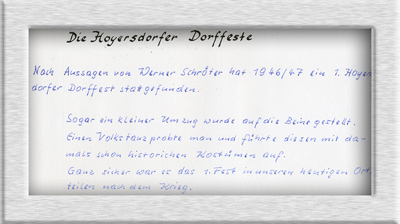 Die Hoyersdorfer Dorffeste
Nach Aussagen von Werner Schröter hat 1946/47 ein 1. Hoyers
dorfer Dorffest statgefunden.
Sogar ein kleiner Umzug wurde auf die Beine gestellt.
Einen Volkstanz probte man und führte diesen mit da-
mals schon historichen Kostümen auf.
Ganz sicher war es das 1. Fest in unseren heutigen Orts
teilen nach dem Krieg.